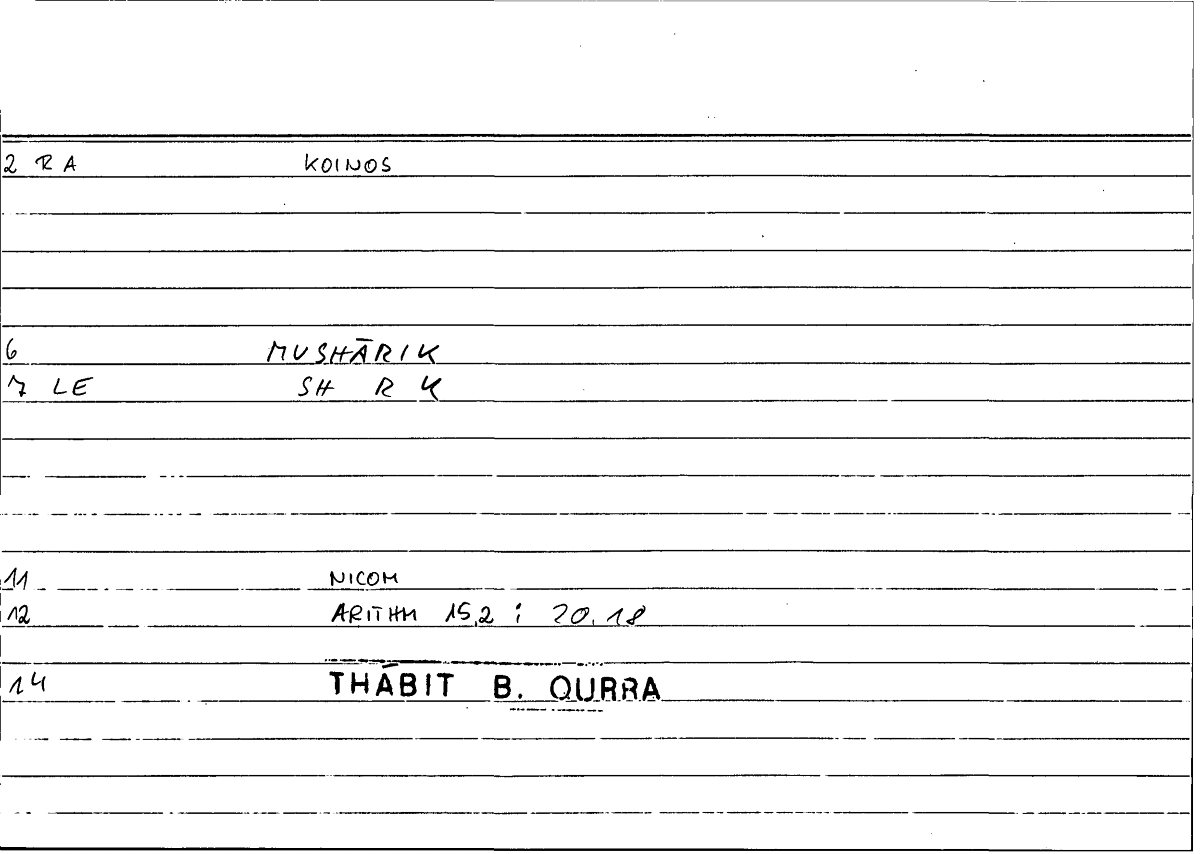 2 RA KOINOS
6 MUSHĀRIK
7 LE SH R K
11 NICOM
12 ARITHM 15,2 ; 20,18
14 THĀBIT B. QURRA